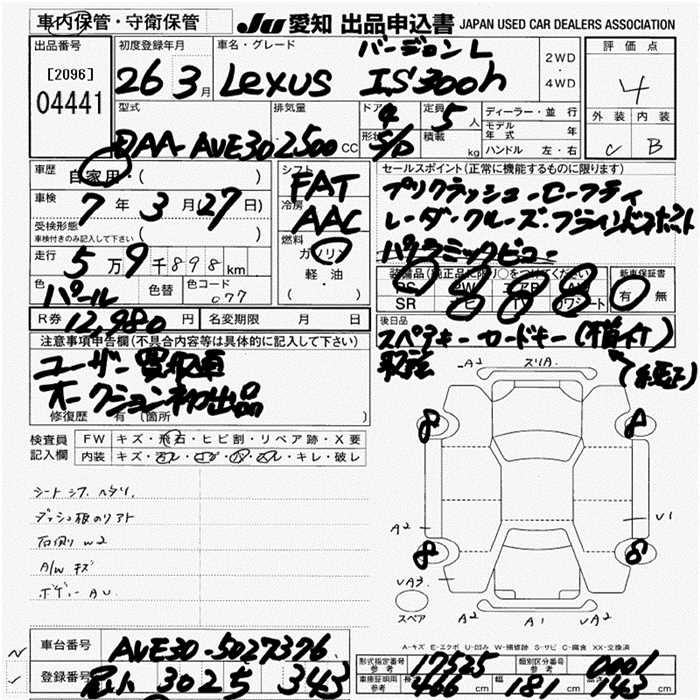 車内保管・守衛保管
JU 愛知 出品申込書 JAPAN USED CAR DEALERS ASSOCIATION
出品番号
[2096]
04441
初度登録年月
26 3月
車名・グレード
バージョンL
Lexus IS300h
2WD
・
4WD
評価点
4
外装 内装
C B
型式
DAA-AVE30
排気量
2500 CC
ドア 4
形状 S/D
定員 5人
積載 kg
ディーラー・並行
モデル年式 年
ハンドル 左・右
車歴
自家用・( )
車検
7年 3月(27日)
受検形態
車検付きのみ記入して下さい ( )
走行
5万9千898km
色
パール
色替
色コード
077
シフト
FAT
冷房
AAC
燃料
ガソリン
軽・油
( ・ )
セールスポイント(正常に機能するものに限ります)
プリクラッシュセーフティ
レーダークルーズ・ブラインドスポット
パノラミックビュー
装備品(純正品に限り)○をつけてください
PS PW AB AW
SR ワシート
新車保証書
有・無
R券 12,980円
名変期限 月 日
後日品
スペアキー カードキー
取説
注意事項申告欄(不具合内容等は具体的に記入して下さい)
ユーザー買取車
オークション初出品
修復歴 有(箇所 )
検査員
記入欄
FW キズ・飛石・ヒビ割・リペア跡・X要
内装 キズ・キレ・破レ
シート シワ ヘタリ
右側 W2
A/W キズ
ボデー AU
-A2 スリA
8 8
A2 V1
8 8
UA3
スペア
A2 A1 UA2
A-キズ E-エクボ U-凹み W-補修跡 S-サビ C-腐食 XX-交換済
車台番号 AVE30-5027376
登録番号 尾小 302 5 343
形式指定番号 参考 17525
類別区分番号 参考 0001
車庫証明用 参考 長さ 466cm 幅 181cm 高さ 143cm